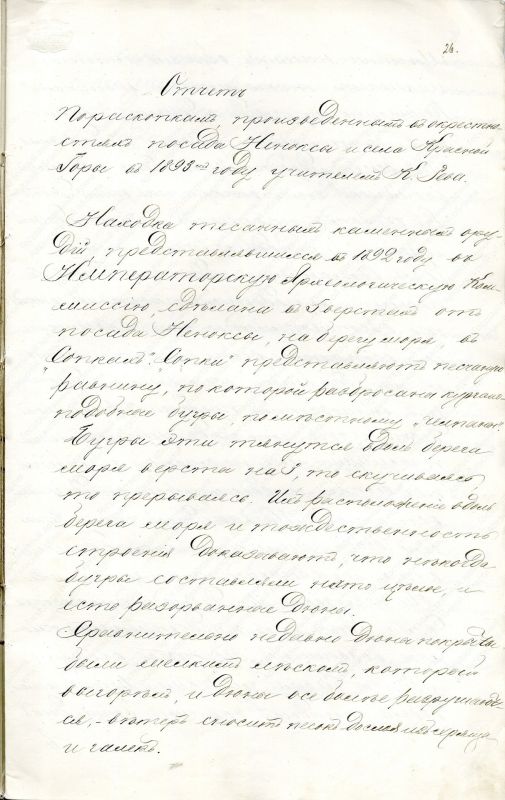 26.
Отчетъ
По раскопкамъ произведеннымъ въ окрестно-
стяхъ посада Неноксы и села Красной
Горы въ 1893-мъ году учителемъ К. Рева.
Находка тесанныхъ каменныхъ ору-
дій, представлявшихся въ 1892 году въ
Императорскую Археологическую Ком-
миссію, сдѣлана въ верстахъ отъ
посада Неноксы, на берегу моря, въ
"Сопкахъ". "Сопки" представляютъ песчаную
равнину, по которой разбросаны кургано-
подобные бугры, по мѣстному
Бугры эти тянутся вдоль берега
моря версты на то скучиваясь,
то прерываясь. Ихъ расположеніе вдоль
берега моря и тождественность
строенія доказываютъ, что нѣкогда
бугры составляли нѣчто цѣлое, и
есть разорванные дюны.
Сравнительно недавно дюны покрыты
были мелкимъ лѣскомъ, который
выгорѣлъ, и дюны все болѣе разрушают-
ся, - вѣтеръ сноситъ песокъ до слоя изъ хряща
и галекъ.